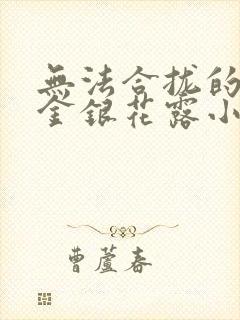 無法合拢的
金銀花露小
曹蘆春